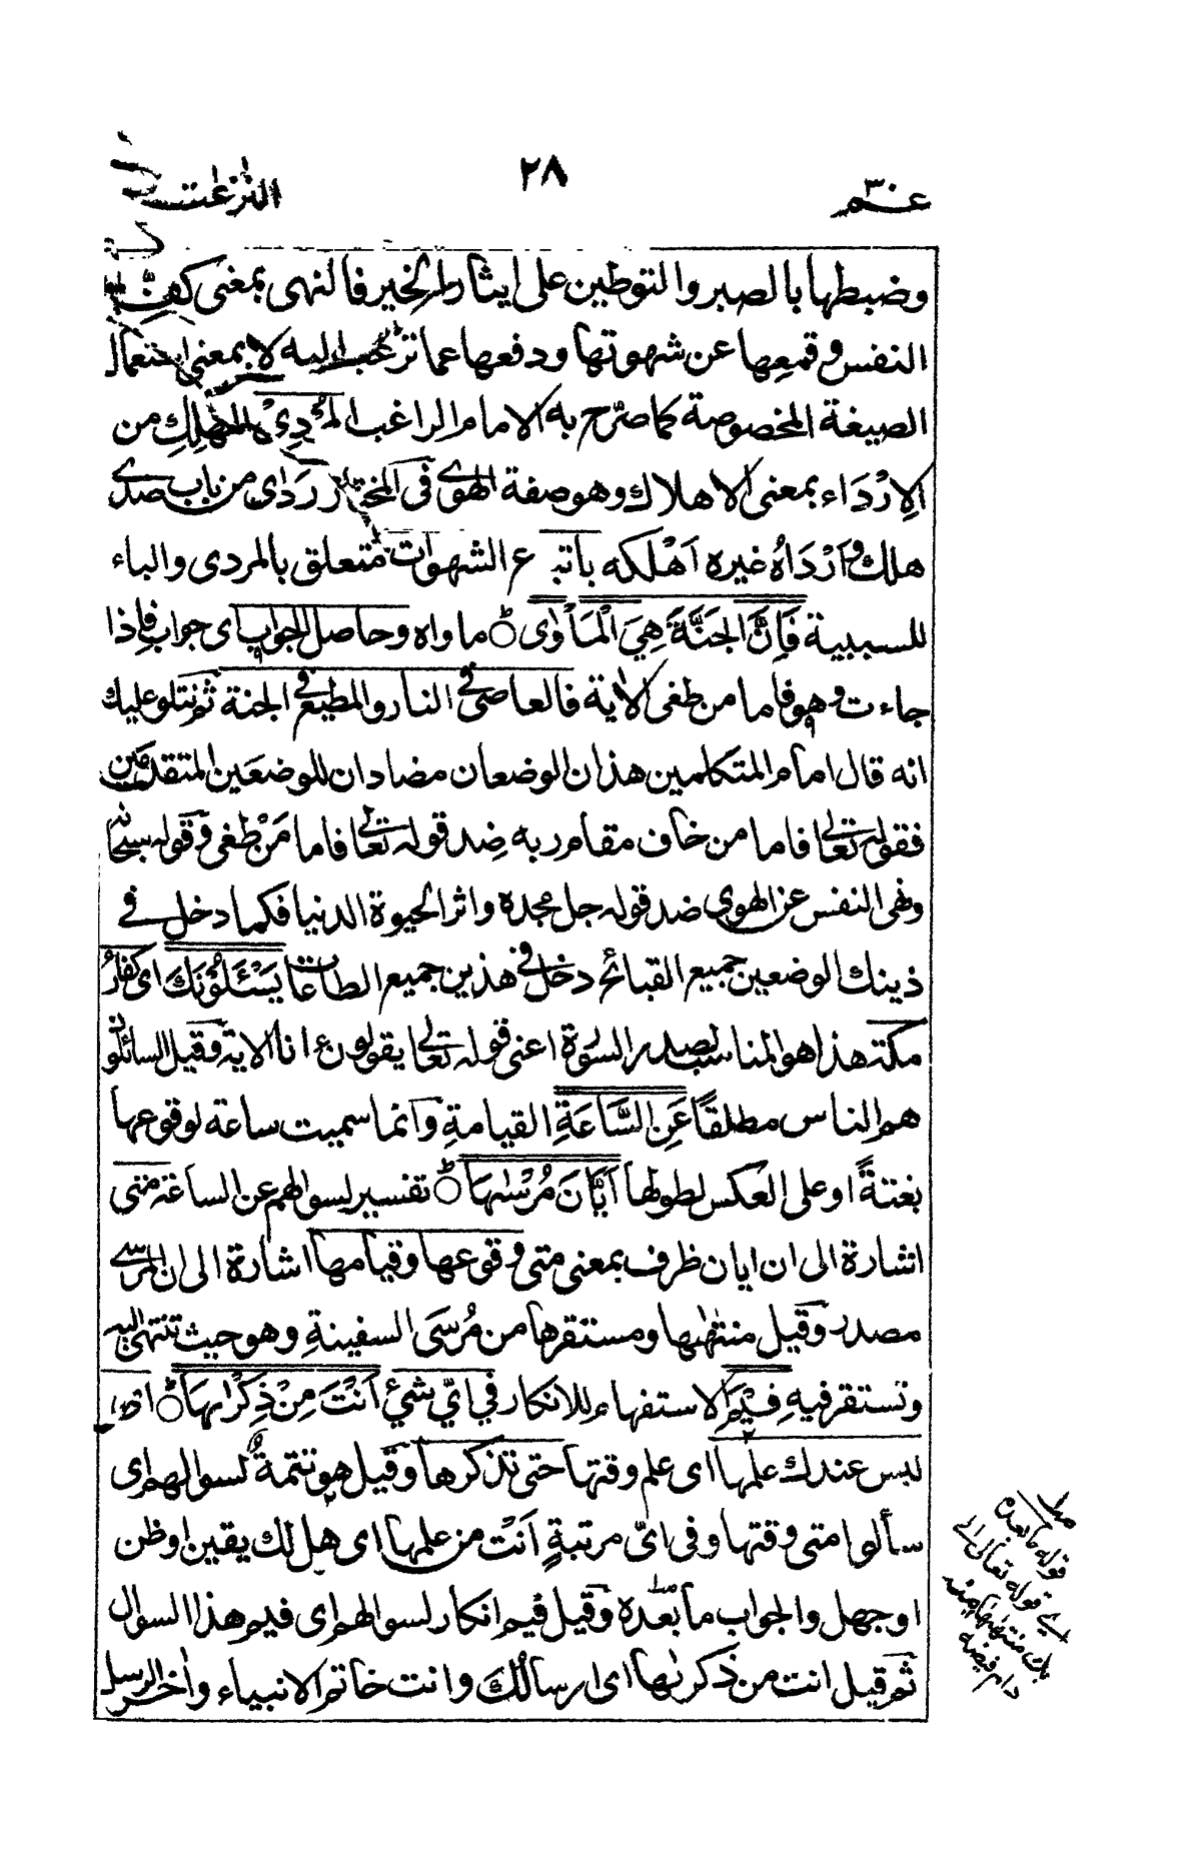 عم ٣٠
٢٨
النّٰزعٰت
وضبطها بالصبر والتوطين على ايثار الخير فالنهى بمعنى كفّ
النفس وقمعها عن شهوتها ودفعها عما ترغب اليه لا بمعنى استعمال
الصيغة المخصوصة كما صرّح به الامام الراغب المُرْدِىْ المُهْلِكِ من
الِارْدَاء بمعنى الاهلاك وهو صفة الهوى فى المختار رَدٰى من باب صدى
هلك وَاَرْدَاهُ غيره اَهْلَكه باتباع الشهوات متعلق بالمردى والباء
للسببية فَاِنَّ الْجَنَّةَ هِيَ الْمَاْوٰى ماواه وحاصل الجواب اى جواب فاذا
جاءت وهو فاما من طغى الاية فالعاصى فى النار والمطيع فى الجنة ثم نتلو عليك
انه قال امام المتكلمين هذان الوضعان مضادان للوضعَين المتقدمَين
فقوله تعالى فاما من خاف مقام ربه ضِد قوله تعالى فاما مَنْ طغى وقوله سبحانه
ونهى النفس عن الهوى ضد قوله جل مجده واثر الحيوة الدنيا فكما دخل فى
ذينك الوضعين جميع القبائح دخل فى هذين جميع الطاعات يَسْئَلُوْنَكَ اى كفارُ
مكة هذا هو المناسب لصدر السورة اعنى قوله تعالى يقولون ءانا الاية وقيل السائلون
هم الناس مطلقًا عَنِ السَّاعَةِ القيامةِ وانما سميت ساعة لوقوعها
بغتةً او على العكس لطولها اَيَّانَ مُرْسٰىهَا تفسير لسوالهم عن الساعة متى
اشارة الى ان ايان ظرف بمعنى متى وقوعها وقيامها اشارة الى ان المرسى
مصدر وقيل منتهٰىها ومستقرها من مُرْسَى السفينةِ وهو حيث تنتهى اليه
وتستقر فيهِ فِيْمَ الاستفهام للانكار فى اىّ شىءٍ اَنْتَ مِنْ ذِكْرٰىهَا اى
ليس عندك علمها اى علم وقتها حتى تذكرها وقيل هو تتمة لسوالهم اى
سألوا متى وقتها وفى اىّ مرتبةٍ اَنْتَ من علمها اى هل لك يقين او ظن
او جهل والجواب ما بعده وقيل فيم انكار لسوالهم اى فيم هذا السوال
ثم قيل انت من ذكرٰىها اى ارسالُك وانت خاتم الانبياء واٰخر الرسل
قوله ما بعده
اى قوله تعالى الى
ربك منتهٰىها منه
دام فيضه